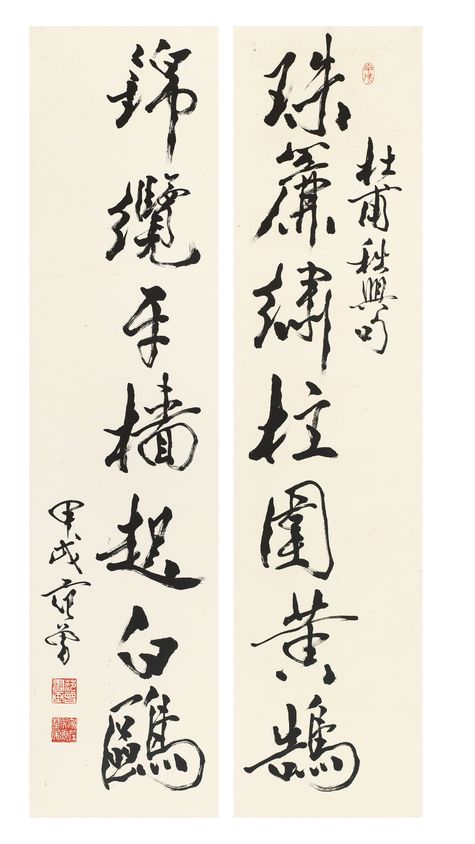 杜甫秋興句
珠簾繡柱圍黃鵠
錦纜牙檣起白鷗
甲戌范曾